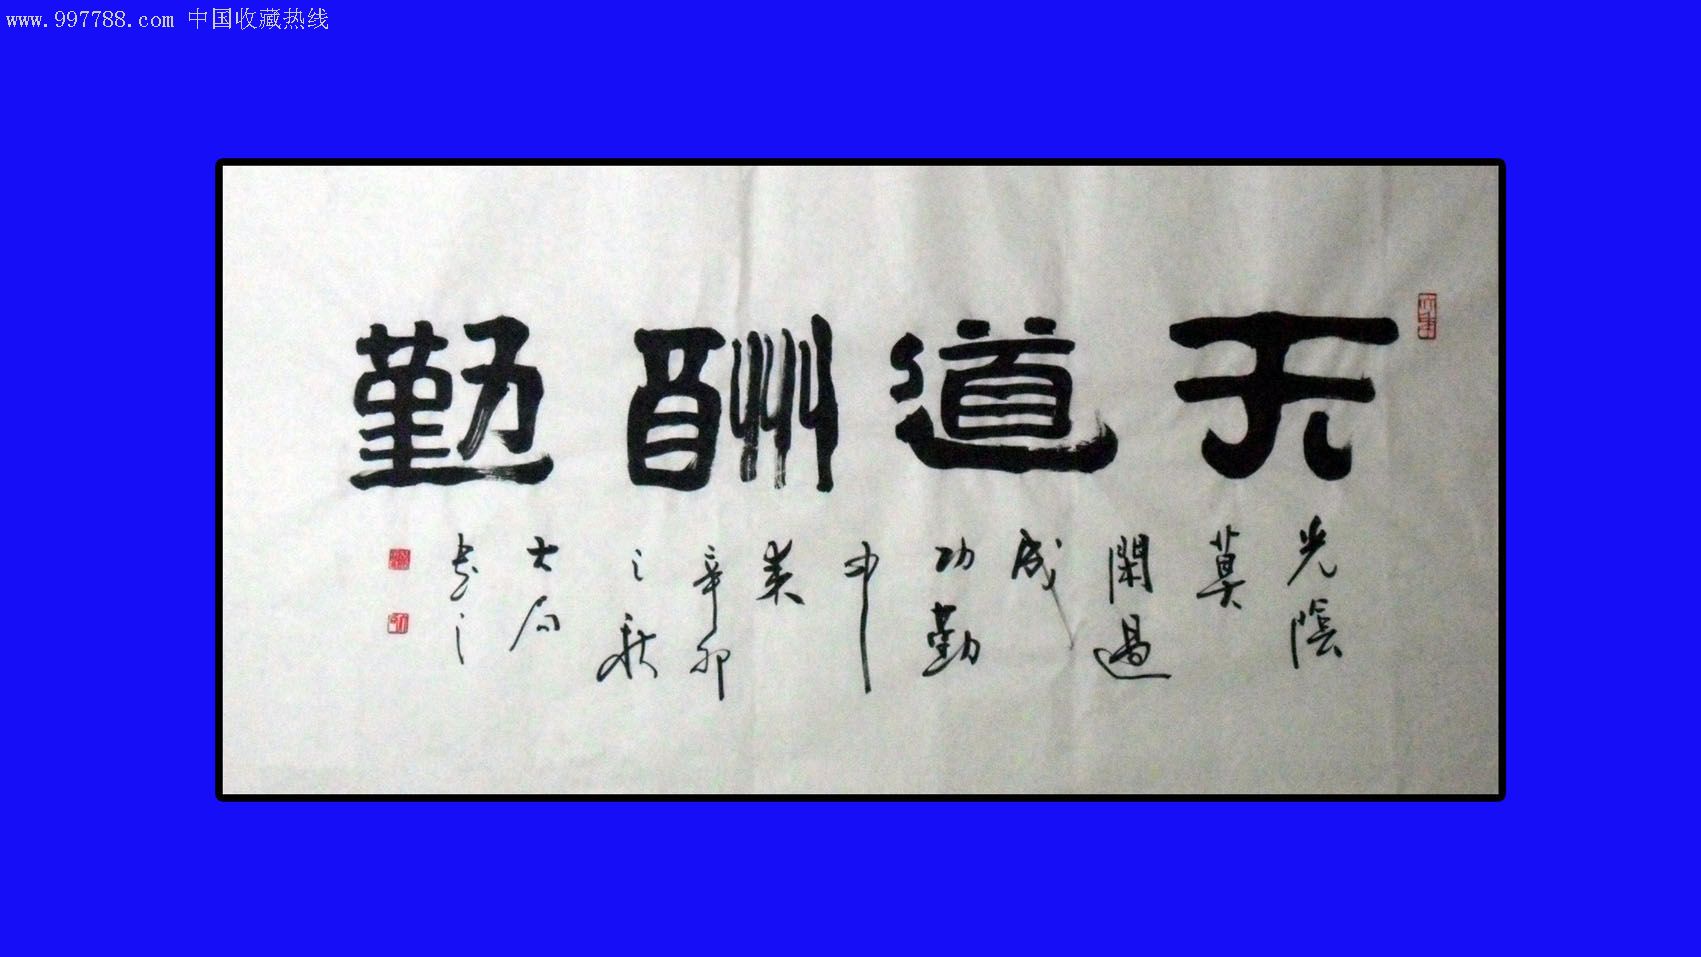 www.997788.com 中国收藏热线
天道酬勤
光陰
莫
閑過
成
功勤
中
来
辛卯
之秋
大石
書之